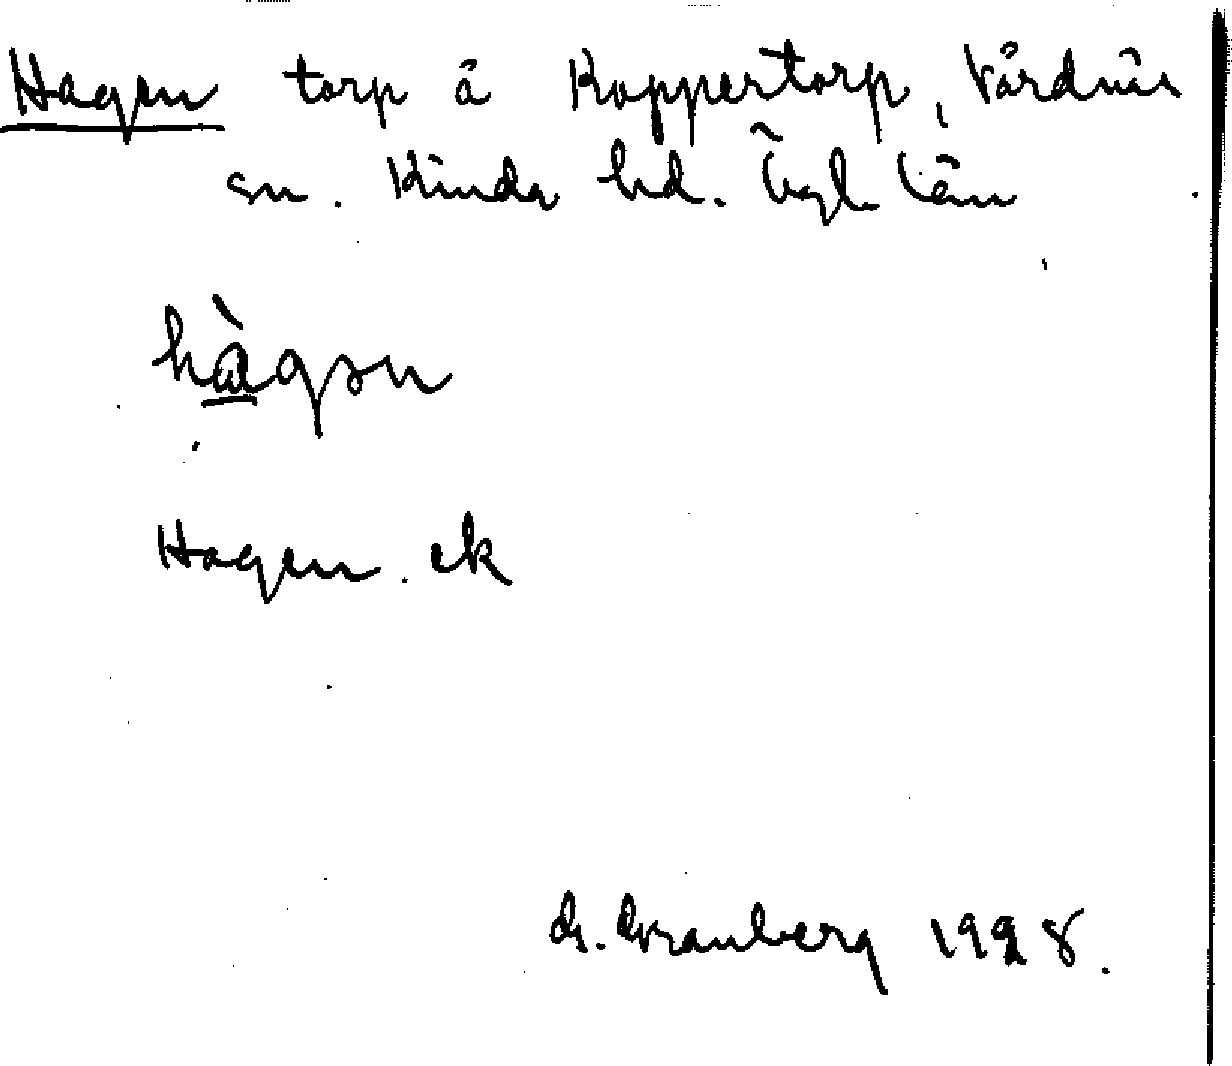 Hagen torp å Koppertorp, Vårdnäs
sn. Kinda hd. Ögl. län
hàgɜn
Hagen. ek
G. Granberg 1928.